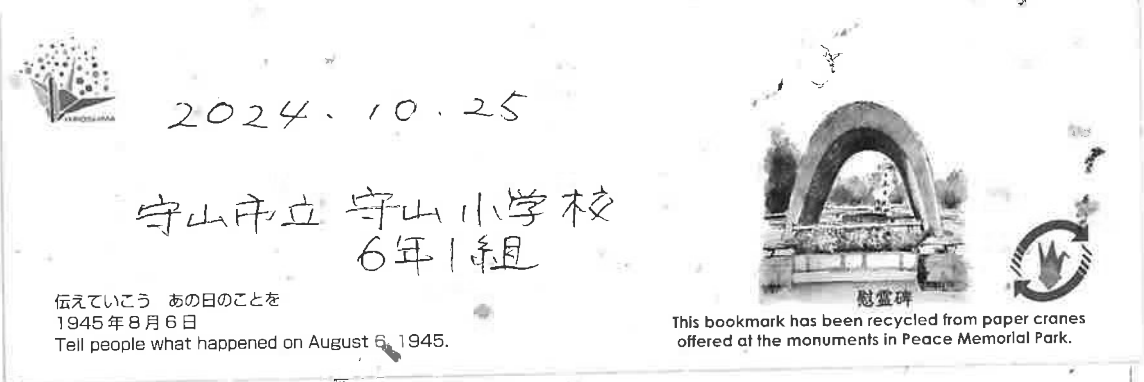 HIROSHIMA
2024.10.25
守山市立 守山小学校
6年1組
伝えていこう あの日のことを
1945年8月6日
Tell people what happened on August 6, 1945.
慰霊碑
This bookmark has been recycled from paper cranes
offered at the monuments in Peace Memorial Park.